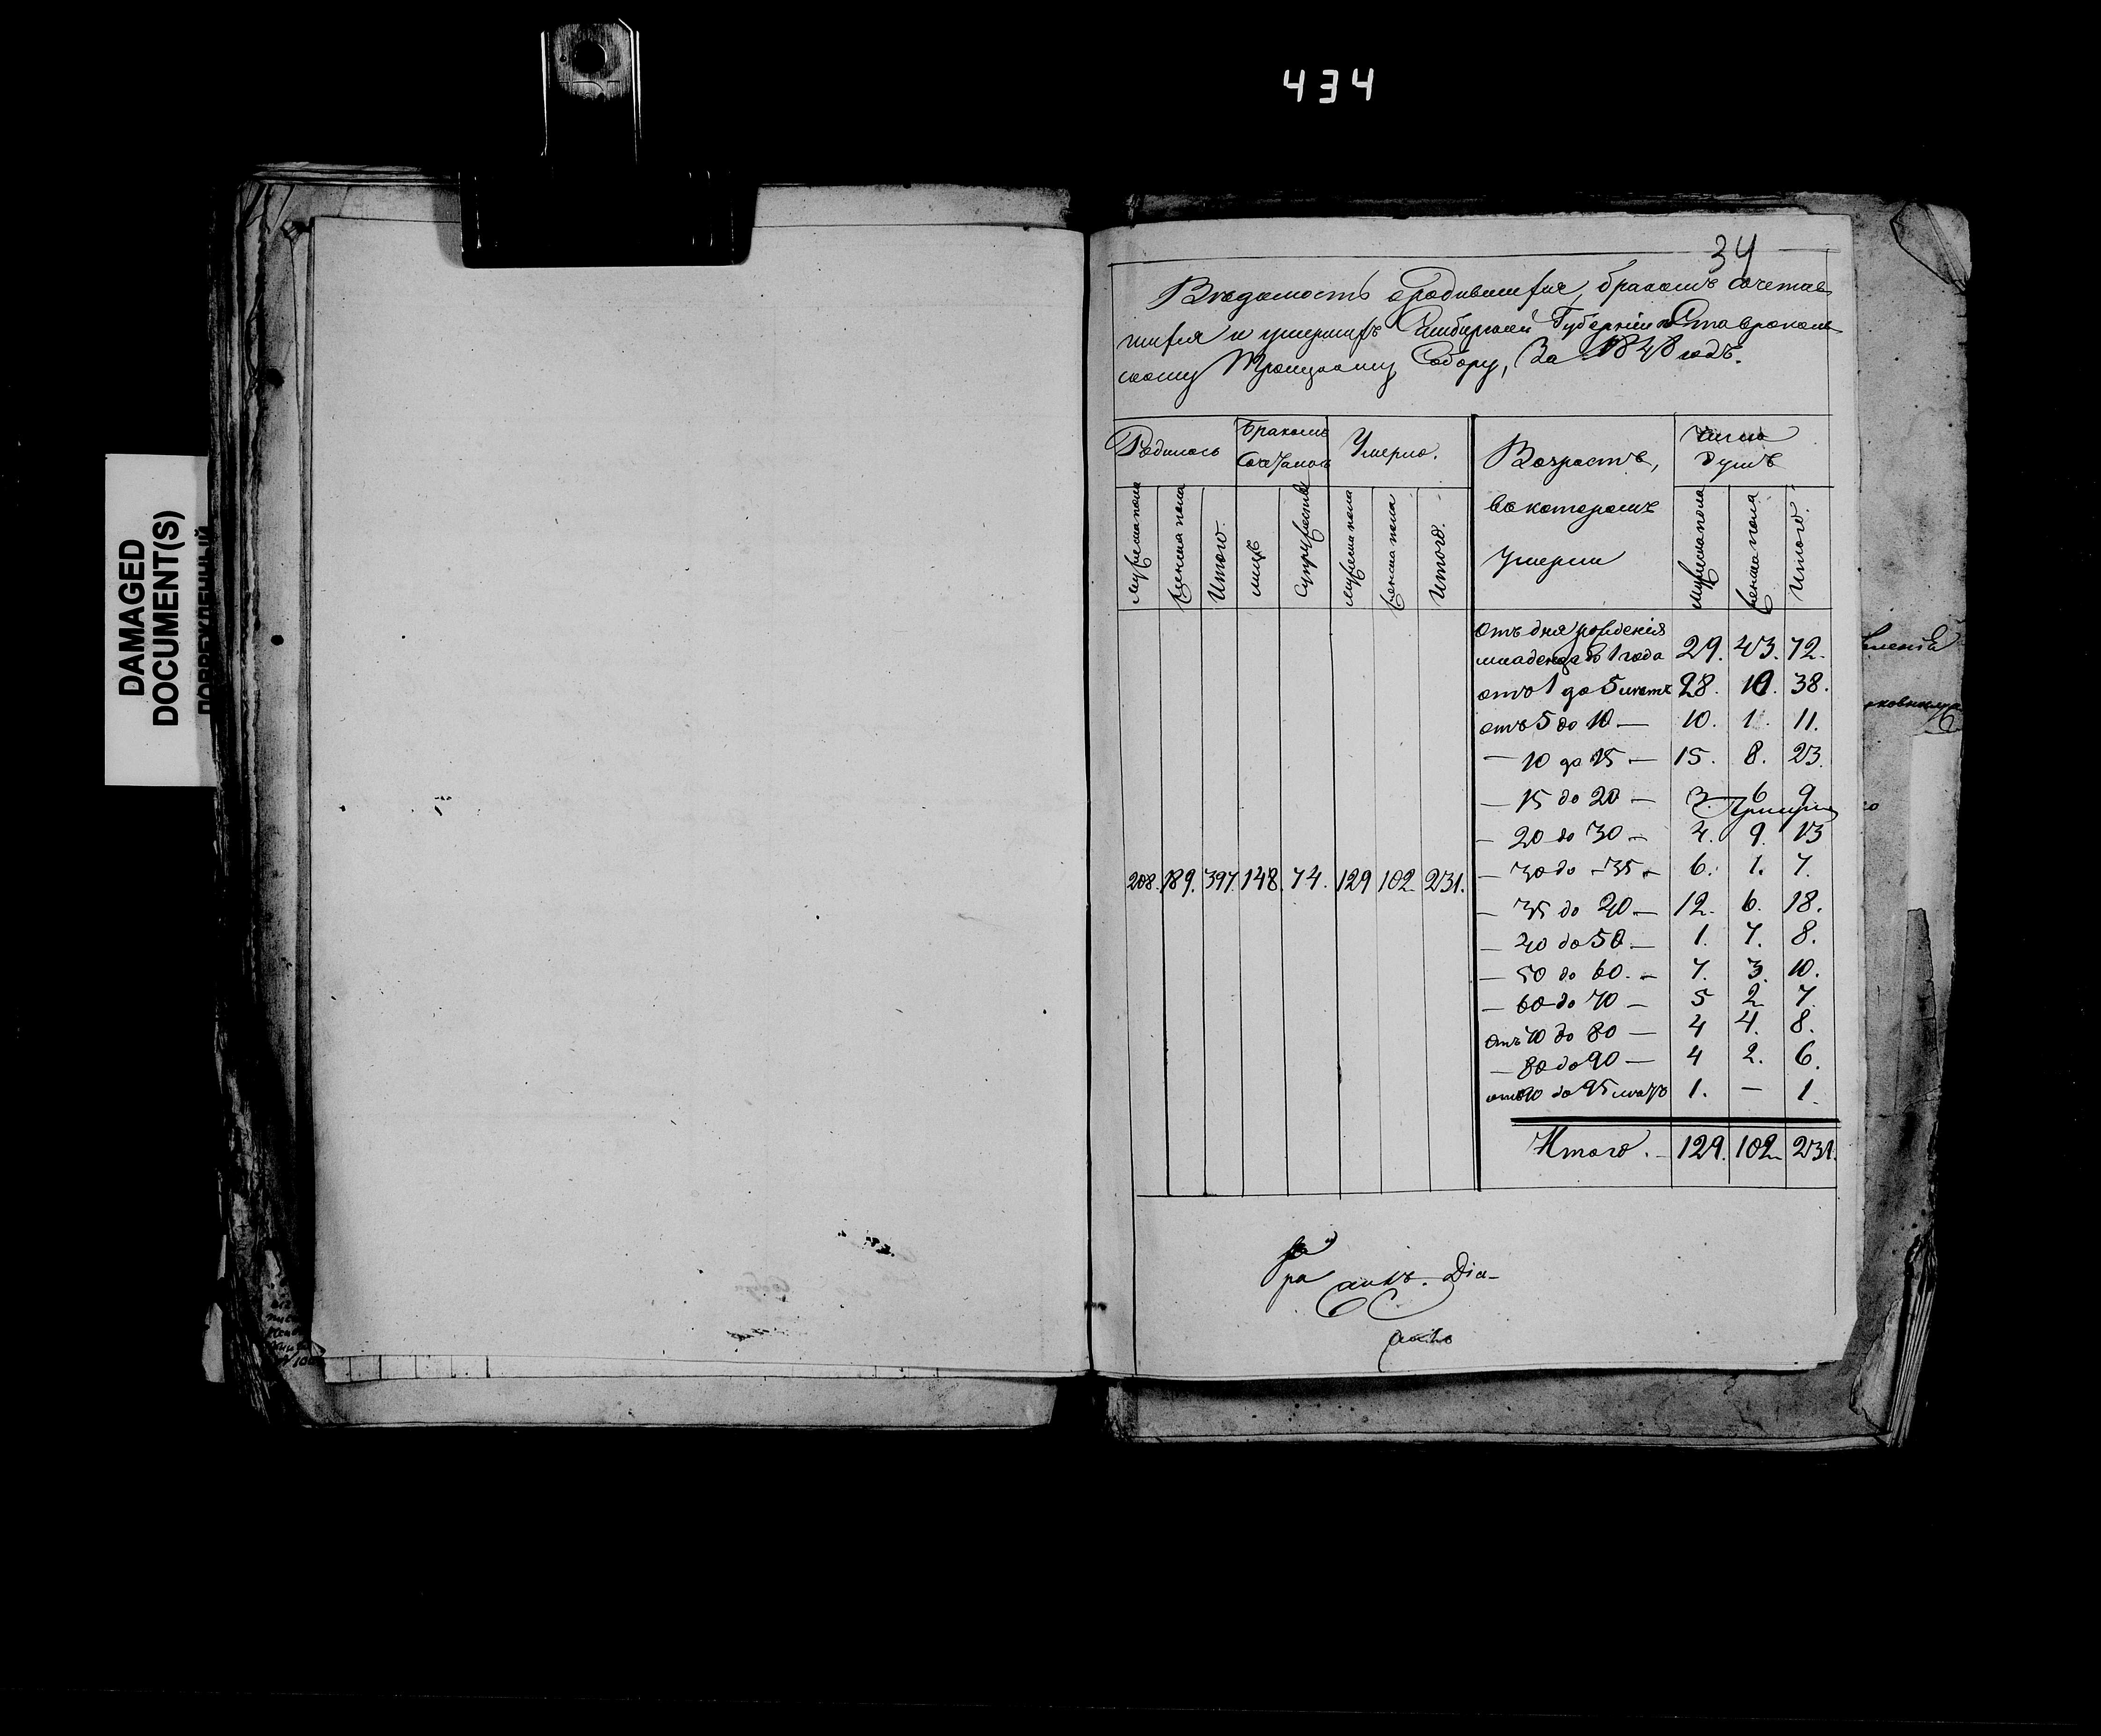 434
DAMAGED
DOCUMENT(S)
34
Вѣдомость о родившихся, бракомъ сочетав
шихся и умершихъ Симбирской Губерніи по Ставрополь
скому Троицкому Собору, За 1848 годъ.
Родилось
Бракомъ Сочеталось
Умерло.
Возрастъ,
въ которомъ
умерли
Число
душъ
мужеска пола
женска пола
Итого.
лицъ
супружествъ
мужеска пола
женска пола
Итого.
мужеска пола
женска пола
Итого.
208. 189. 397. 148. 74. 129 102. 231.
Отъ дня рожденія
младенца до 1 года 29. 43. 72.
отъ 1 до 5 лѣтъ 28. 10. 38.
отъ 5 до 10 — 10. 1. 11.
— 10 до 15 — 15. 8. 23.
— 15 до 20 — 3. 6 9
— 20 до 30 — 4. 9. 13
— 30 до 35 — 6. 1. 7.
— 35 до 40 — 12. 6. 18.
— 40 до 50 — 1. 7. 8.
— 50 до 60. — 7. 3. 10.
— 60 до 70 — 5 2. 7.
отъ 70 до 80 — 4 4. 8.
— 80 до 90 — 4 2. 6.
отъ 90 до 95 лѣтъ 1. — 1.
Итого. 129. 102. 231.